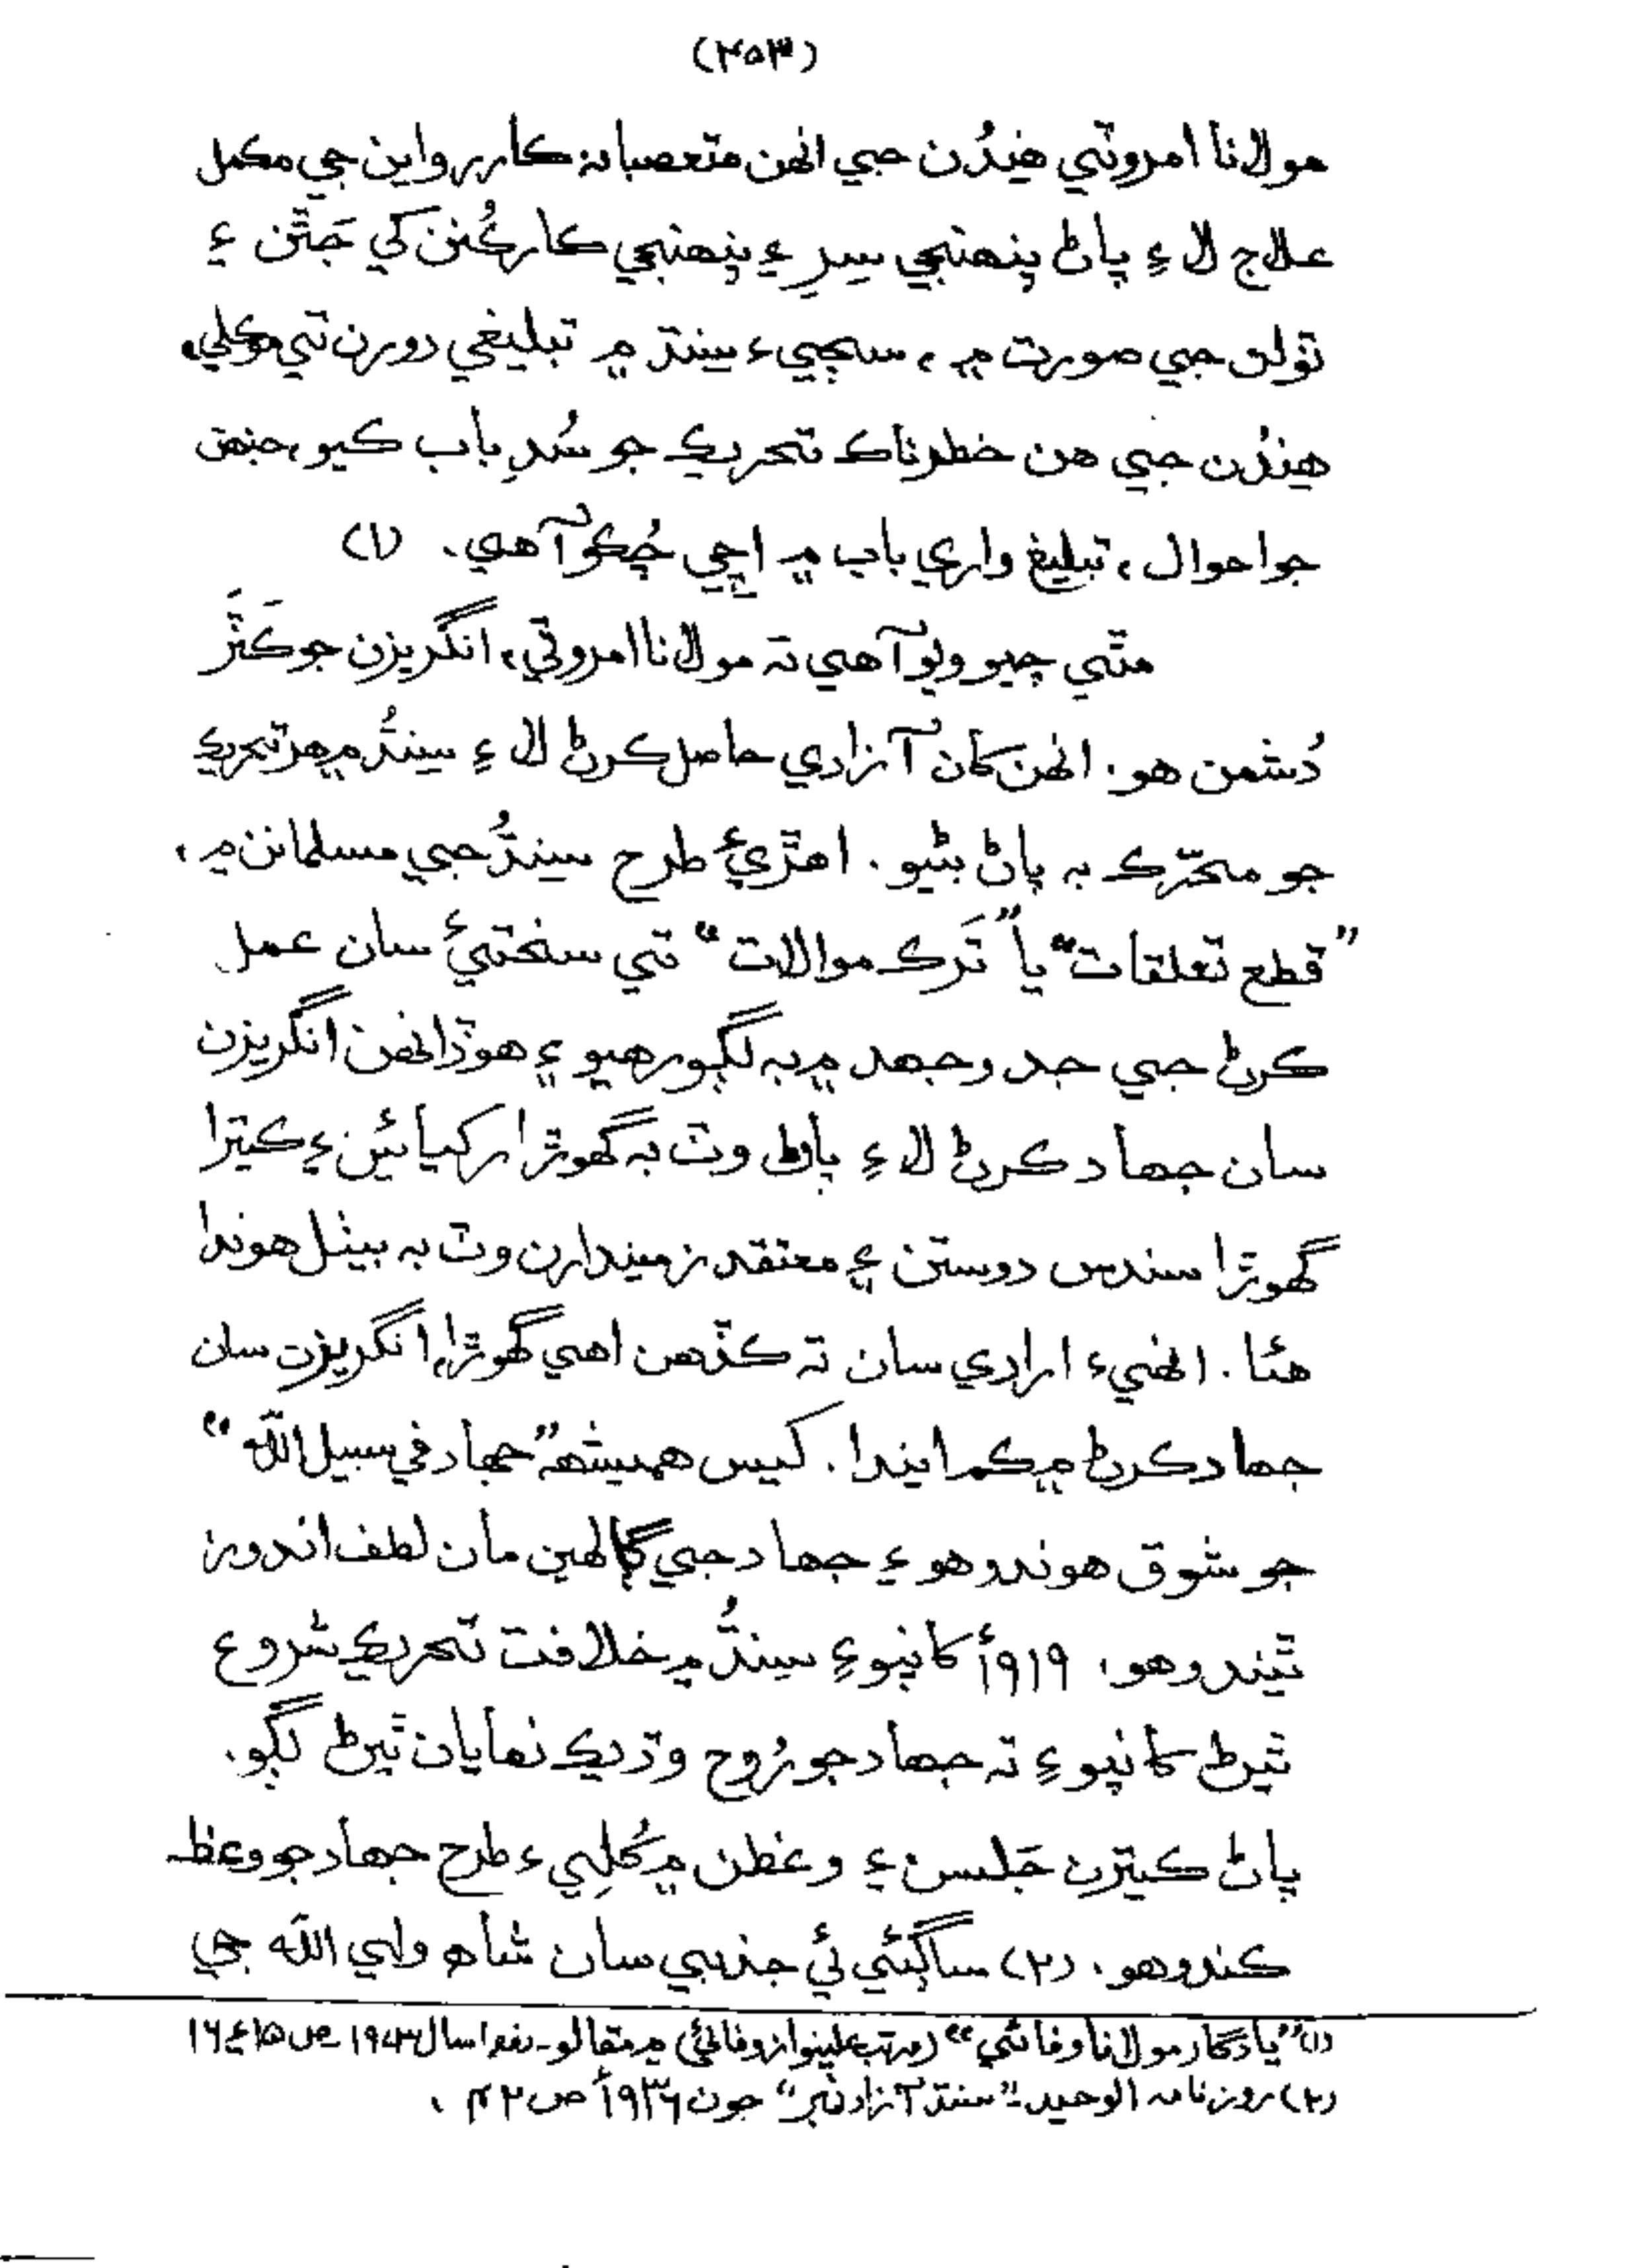 (۴۵۳)
مولانا امروٽي هندُن جي انهن متعصبانہ ڪاررواين جي مڪمل
علاج لاءِ پاڻ پنهنجي سِرِ ۽ پنهنجي ڪارڪُنن کي جَٿن ۽
ٽولن جي صورت ۾، سڄيءَ سنڌ ۾ تبليغي دورن تي موڪلي،
هندُن جي هن خطرناڪ تحريڪ جو سَدِ باب ڪيو، جنهن
جو احوال، تبليغ واري باب ۾ اچي چُڪو آهي. (۱)
مٿي چيو ويو آهي تہ مولانا امروٽي، انگريزن جو ڪَٽَر
دُشمن هو. انهن کان آزادي حاصل ڪرڻ لاءِ سنڌُ ۾ هر تحريڪ
جو محرّڪ بہ پاڻ بڻيو. اهڙيءَ طرح سنڌُ جي مسلمانن ۾،
”قطع تعلقات“ يا ”تَرڪ موالات“ تي سختيءَ سان عمل
ڪرڻ جي جدوجهد ۾ بہ لڳو رهيو ۽ هوڏانهن انگريزن
سان جهاد ڪرڻ لاءِ پاڻ وٽ بہ گهوڙا رکيائين ۽ ڪيترا
گهوڙا سندس دوستن ۽ معتقد زميندارن وٽ بہ بيٺل هوندا
هئا. انهيءَ ارادي سان تہ ڪڏهن اهي گهوڙا، انگريزن سان
جهاد ڪرڻ ۾ ڪم ايندا. کيس هميشہ ”جهاد في سبيل الله“
جو شوق هوندو هو ۽ جهاد جي ڳالهين مان لطف اندوز
ٿيندو هو. ۱۹۱۹ع کانپوءِ سنڌُ ۾ خلافت تحريڪ شروع
ٿيڻ کانپوءِ تہ جهاد جو رُوح وڌيڪ نمايان ٿيڻ لڳو.
پاڻ ڪيترن جَلسن ۽ وعظن ۾ کُليءَ طرح جهاد جو وعظ
ڪندو هو. (۲) ساڳئي ئي جذبي سان شاهہ ولي الله جي
(۱) ”يادگار مولانا وفائي“ (مرتب علينواز وفائي) ۾ مقالو۔ سال ص ۱۵ ۽ ۱۶
(۲) روزنامہ الوحيد۔ ”سنڌ آزاد نمبر“ جون ۱۹۳۶ع ص ۴۲.